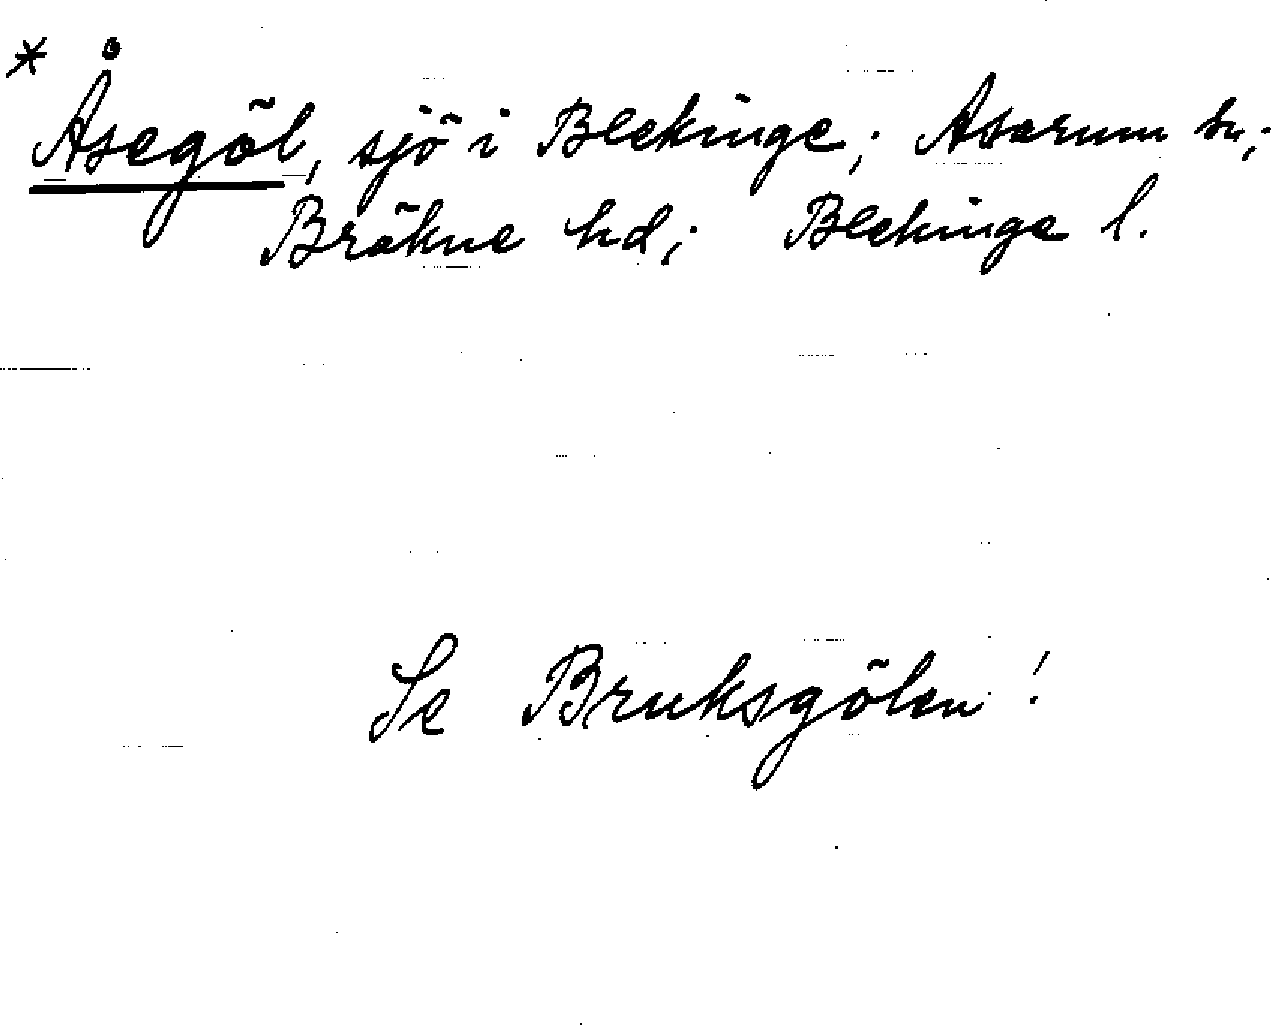 * Åsegöl, sjö i Blekinge; Asarum sn;
Bräkne hd; Blekinge l.
Se Bruksgölen!